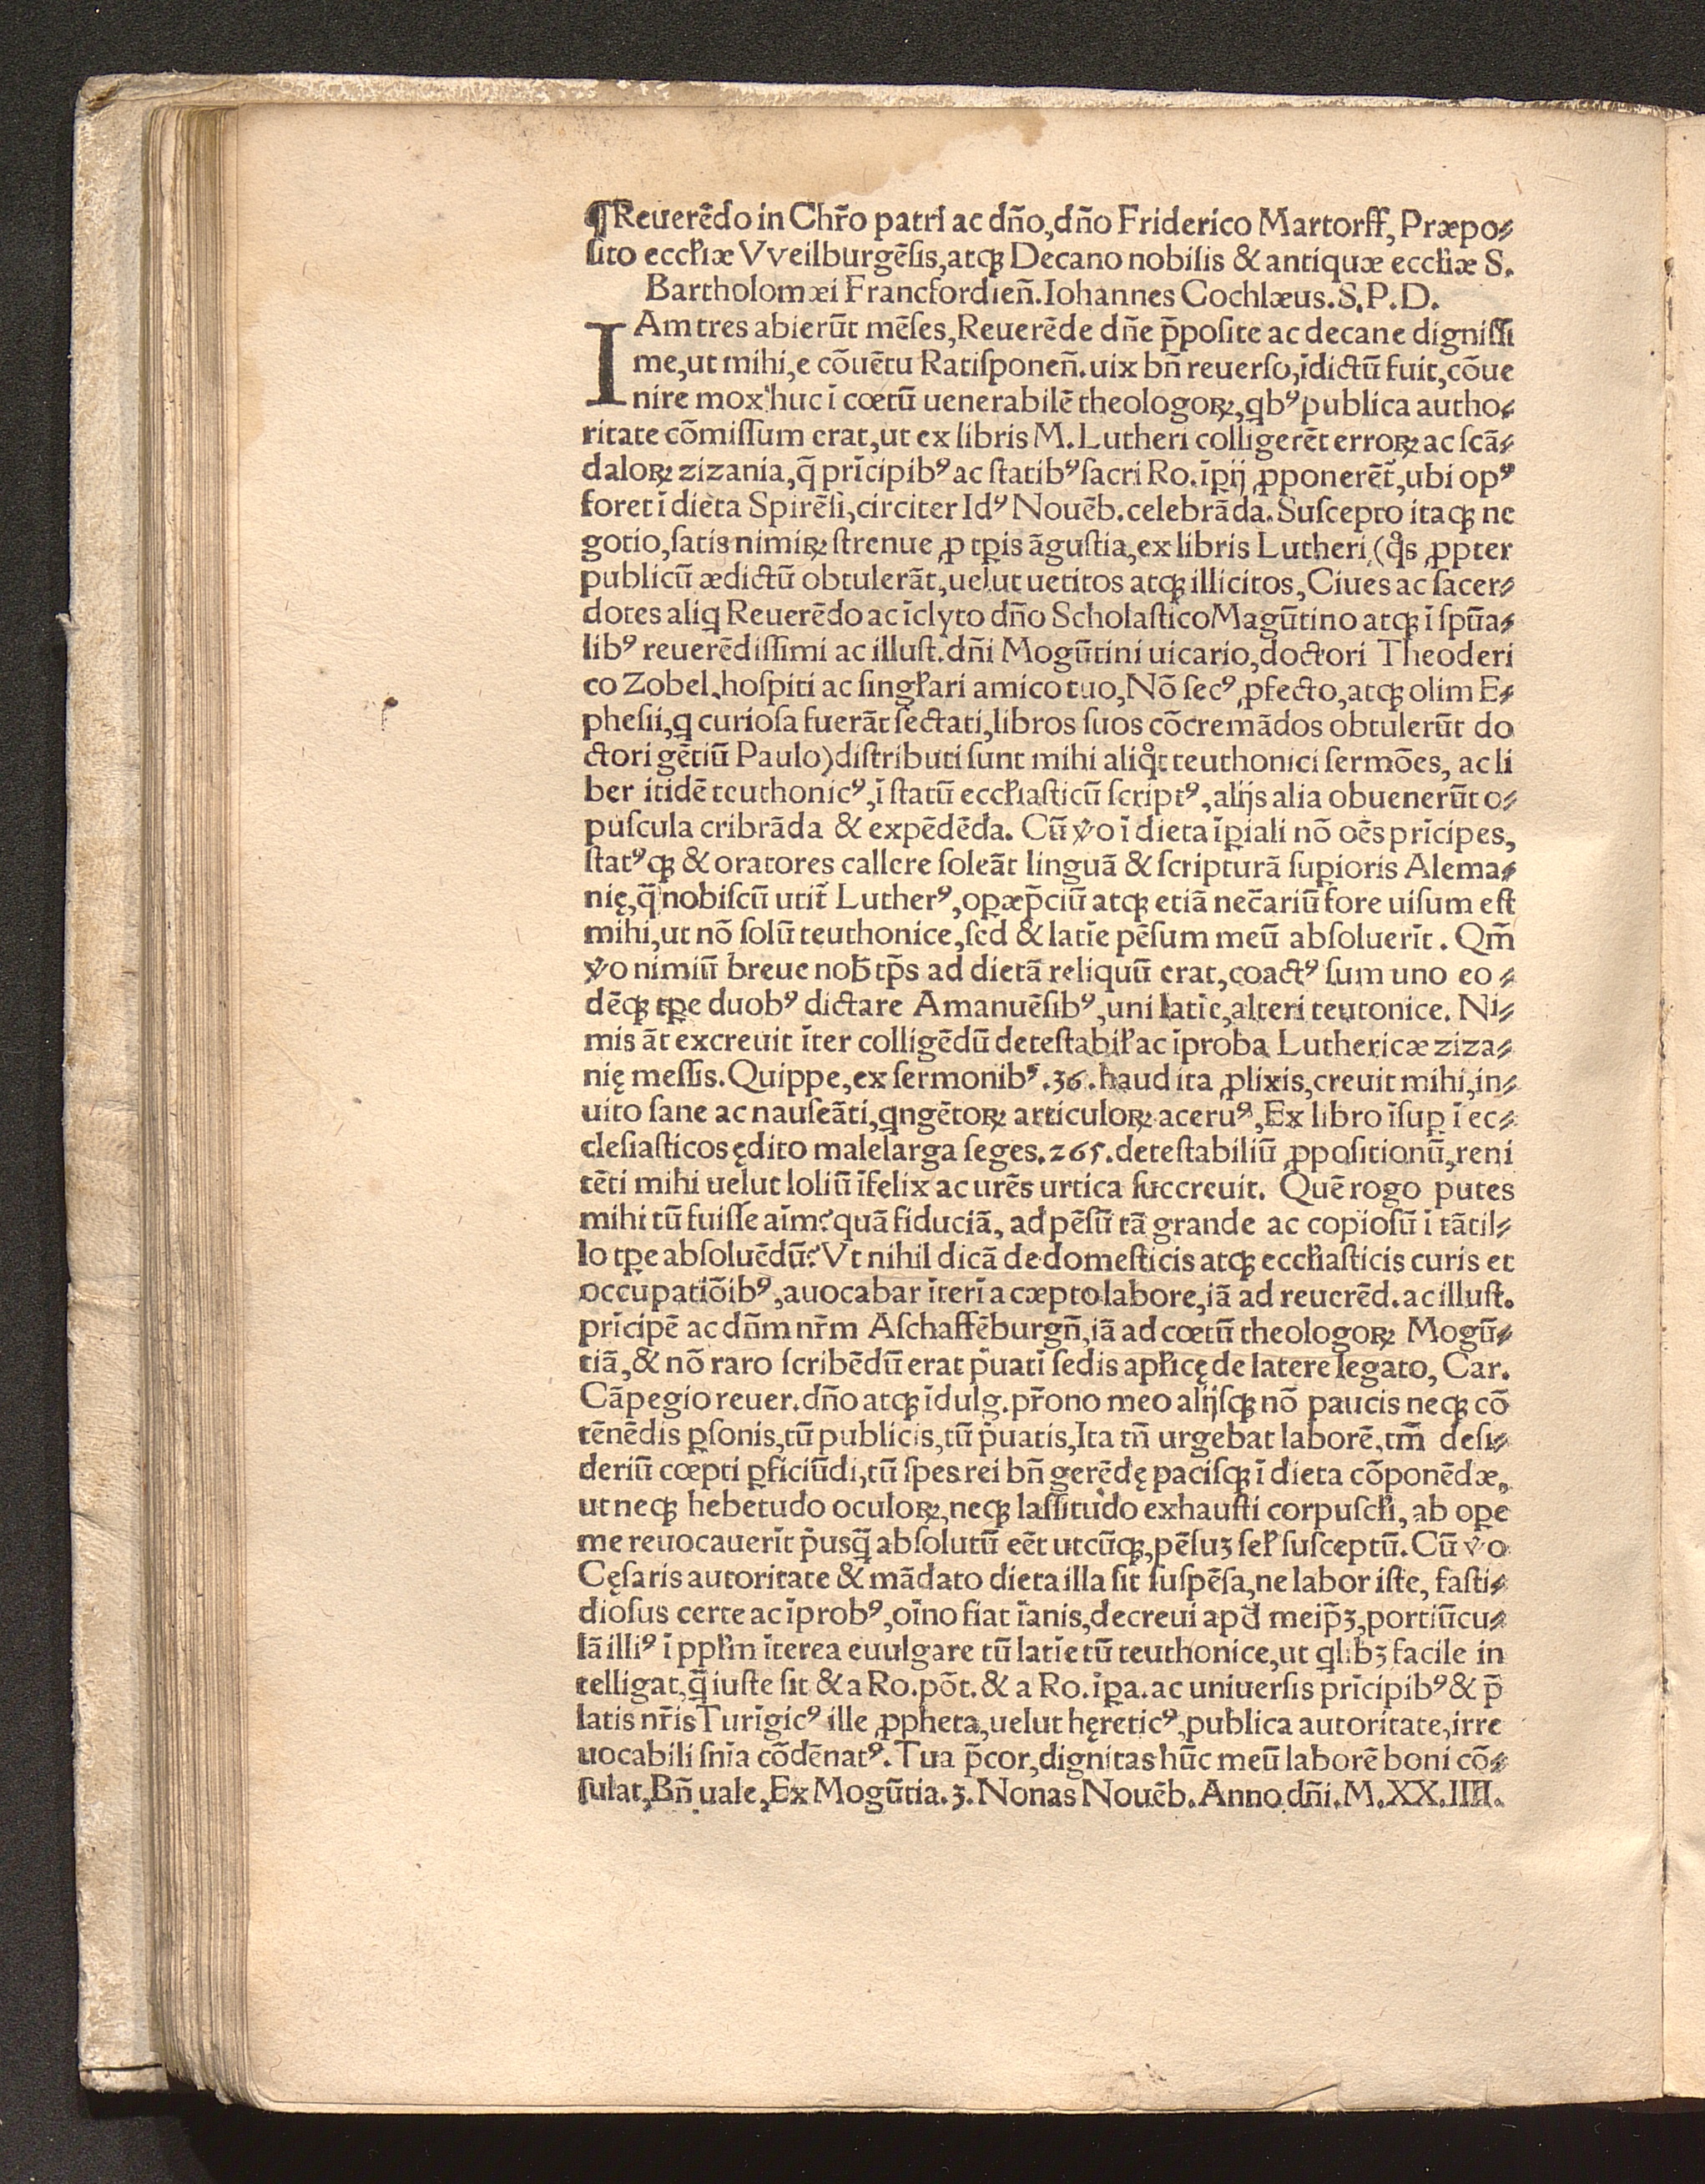 ¶Reuerēdo in Chr̄o patri ac dn̄o, dn̄o Friderico Martorff, Præpo⸗
ſito eccłiæ Vveilburgēſis, atqꝫ Decano nobilis & antiquæ eccłiæ S.
Bartholomæi Francfordien̄. Iohannes Cochlæus. S. P. D.
IAm tres abierūt mēſes, Reuerēde dn̄e p̄poſite ac decane digniſſi
me, ut mihi, e cōuētu Ratiſponen̄. uix bn̄ reuerſo, īdictū fuit, cōue
nire mox huc ī cœtū uenerabilē theologoꝝ, qbꝰ publica autho⸗
ritate cōmiſſum erat, ut ex libris M. Lutheri colligerēt erroꝝ ac ſcā⸗
daloꝝ zizania, q̄ prīcipibꝰ ac ſtatibꝰ ſacri Ro. īꝑij ꝓponerēt̄, ubi opꝰ
foret ī dieta Spirēſi, circiter Idꝰ Nouēb. celebrāda. Suſcepto itaqꝫ ne
gotio, ſatis nimiꝝ ſtrenue ꝓ tꝑis āguſtia, ex libris Lutheri (qͦs ꝓpter
publicū ædictū obtulerāt, uelut uetitos atqꝫ illicitos, Ciues ac ſacer⸗
dotes aliꝗ Reuerēdo ac īclyto dn̄o Scholaſtico Magūtino atqꝫ ī ſpūa⸗
libꝰ reuerēdiſſimi ac illuſt. dn̄i Mogūtini uicario, doctori Theoderi
co Zobel, hoſpiti ac ſingłari amico tuo, Nō ſecꝰ ꝓfecto, atqꝫ olim E⸗
pheſii, ꝗ curioſa fuerāt ſectati, libros ſuos cōcremādos obtulerūt do
ctori gētiū Paulo) diſtributi ſunt mihi aliqͦt teuthonici ſermōes, ac li
ber itidē teuthonicꝰ, ī ſtatū eccłiaſticū ſcriptꝰ, alijs alia obuenerūt o⸗
puſcula cribrāda & expēdēda. Cū v̊o ī dieta īꝑiali nō oēs prīcipes,
ſtatꝰqꝫ & oratores callere ſoleāt linguā & ſcripturā ſuꝑioris Alema⸗
nię, q̄ nobiſcū utit̄ Lutherꝰ, oꝑæp̄ciū atqꝫ etiā nec̄ariū fore uiſum eſt
mihi, ut nō ſolū teuthonice, ſed & latīe pēſum meū abſoluerīt. Qm̄
v̊o nimiū breue nob̄ tp̄s ad dietā reliquū erat, coactꝰ ſum uno eo⸗
dēqꝫ tꝑe duobꝰ dictare Amanuēſibꝰ, uni latīe, alteri teutonice. Ni⸗
mis āt excreuit īter colligēdū deteſtabił ac īproba Luthericæ ziza⸗
nię meſſis. Quippe, ex ſermonibꝰ. 36. haud ita ꝓlixis, creuit mihi, in⸗
uito ſane ac nauſeāti, ꝗngētoꝝ articuloꝝ aceruꝰ, Ex libro īſuꝑ ī ec⸗
cleſiaſticos ędito male larga ſeges. 265. deteſtabiliū ꝓpoſitionū, reni
tēti mihi uelut loliū īfelix ac urēs urtica ſuccreuit. Quē rogo putes
mihi tū fuiſſe aīm? quā fiduciā, ad pēſū tā grande ac copioſū ī tātil⸗
lo tꝑe abſoluēdū? Vt nihil dicā de domeſticis atqꝫ eccłiaſticis curis et
occupatiōibꝰ, auocabar īterī a cæpto labore, iā ad reuerēd. ac illuſt.
prīcipē ac dn̄m nr̄m Aſchaffēburgn̄, iā ad cœtū theologoꝝ Mogū⸗
tiā, & nō raro ſcribēdū erat p̓uatī ſedis apłicę de latere legato, Car.
Cāpegio reuer. dn̄o atqꝫ īdulg. pr̄ono meo alijſqꝫ nō paucis neqꝫ cō
tēnēdis ꝑſonis, tū publicis, tū p̓uatis, Ita tn̄ urgebat laborē, tm̄ deſi⸗
deriū cœpti ꝑficiūdi, tū ſpes rei bn̄ gerēdę paciſqꝫ ī dieta cōponēdæ,
ut neqꝫ hebetudo oculoꝝ, neqꝫ laſſitudo exhauſti corpuſcłi, ab oꝑe
me reuocauerīt p̓uſq̄ abſolutū eēt utcūqꝫ, pēſuꝫ ſeł ſuſceptū. Cū v̊o
Cęſaris autoritate & mādato dieta illa ſit ſuſpēſa, ne labor iſte, faſti⸗
dioſus certe ac īprobꝰ, oīno fiat īanis, decreui apd̄ meip̄ꝫ, portiūcu⸗
lā illiꝰ ī ppłm īterea euulgare tū latīe tū teuthonice, ut ꝗlibꝫ facile in
telligat, q̄ iuſte ſit & a Ro. pōt. & a Ro. īꝑa. ac uniuerſis prīcipibꝰ & p̄
latis nr̄is Turīgicꝰ ille ꝓpheta, uelut hęreticꝰ, publica autoritate, irre
uocabili ſnīa cōdēnatꝰ. Tua p̄cor, dignitas hūc meū laborē boni cō⸗
ſulat, Bn̄ uale, Ex Mogūtia. 3. Nonas Nouēb. Anno dn̄i. M. XX. IIII.